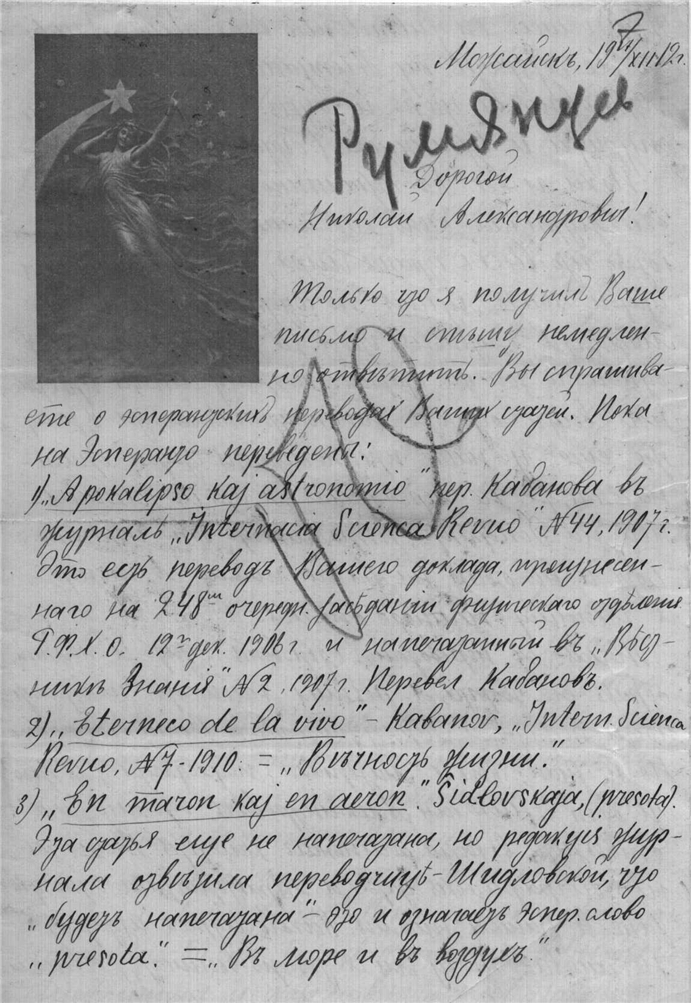 Можайскъ, 19 7/XII 12 г.
Румянцев
Дорогой
Николай Александровичъ!
Только что я получилъ Ваше
письмо и спѣшу немедлен-
но отвѣтить. Вы спрашива-
ете о эсперантскихъ переводахъ Вашихъ статей. Пока
на Эсперанто переведены:
1) „Apokalipso kaj astronomio" пер. Кабанова въ
журналѣ „Internacia Scienca Revuo" № 44, 1907 г.
Это есть переводъ Вашего доклада, произнесен-
наго на 248мъ очередн. засѣданіи физическаго отдѣленія
Р.Ф.Х.О. 12го дек. 1906 г. и напечатанный въ „Вѣст-
никѣ Знанія" № 2, 1907 г. Перевел Кабановъ.
2) „Eterneco de la vivo" – Kabanov, „Intern. Scienca
Revuo, № 7 - 1910. = „Вѣчность жизни."
3) „En maron kaj en aeron". Ŝidlovskaja, (presota).
Эта статья еще не напечатана, но редакція жур-
нала отвѣтила переводчицѣ – Шидловской, что
„будетъ напечатана" – это и означаетъ эспер. слово
„presota." = „Въ море и въ воздухъ."